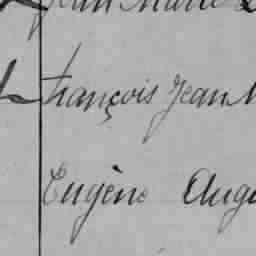 Jean Marie
François Jean M
Eugène Aug